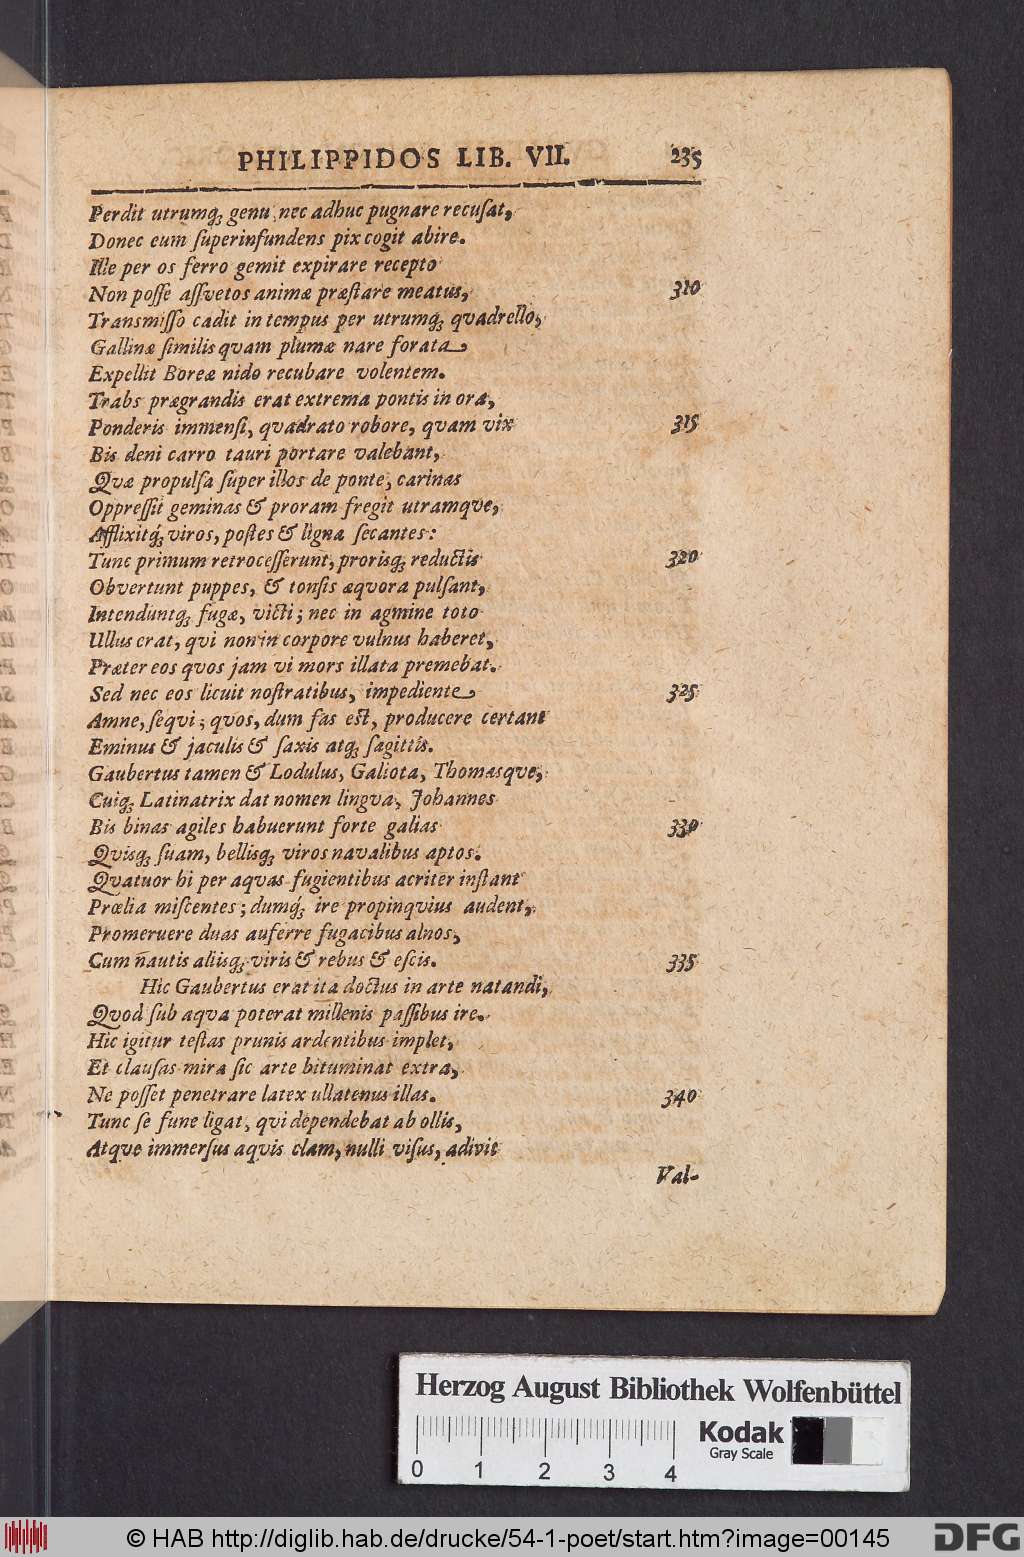 PHILIPPIDOS LIB. VII. 235
Perdit utrumq; genu nec adhuc pugnare recuſat,
Donec eum ſuperinfundens pix cogit abire.
Ille per os ferro gemit expirare recepto
Non poſſe aſſvetos animæ præſtare meatus, 310
Transmiſſo cadit in tempus per utrumq; quadrello,
Gallinæ ſimilis quam plumæ nare forata
Expellit Boreæ nido recubare volentem.
Trabs prægrandis erat extrema pontis in ora,
Ponderis immenſi, quadrato robore, quam vix 315
Bis deni carro tauri portare valebant,
Quæ propulſa ſuper illos de ponte, carinas
Oppreſſit geminas & proram fregit utramque,
Afflixitq́; viros, poſtes & ligna ſecantes:
Tunc primum retroceſſerunt, prorisq; reductis 320
Obvertunt puppes, & tonſis æquora pulſant,
Intenduntq; fugæ, victi; nec in agmine toto
Ullus erat, qui non in corpore vulnus haberet,
Præter eos quos jam vi mors illata premebat.
Sed nec eos licuit noſtratibus, impediente 325
Amne, ſequi; quos, dum fas eſt, producere certant
Eminus & jaculis & ſaxis atq; ſagittis.
Gaubertus tamen & Lodulus, Galiota, Thomasque,
Cuiq; Latinatrix dat nomen lingva, Johannes
Bis binas agiles habuerunt forte galias 330
Quisq; ſuam, bellisq; viros navalibus aptos.
Quatuor hi per aquas fugientibus acriter inſtant
Prœlia miſcentes; dumq́; ire propinqvius audent,
Promeruere duas auferre fugacibus alnos,
Cum nautis aliisq; viris & rebus & eſcis. 335
Hic Gaubertus erat ita doctus in arte natandi,
Quod ſub aqva poterat millenis paſſibus ire.
Hic igitur teſtas prunis ardentibus implet,
Et clauſas mira ſic arte bituminat extra,
Ne poſſet penetrare latex ullatenus illas. 340
Tunc ſe fune ligat, qui dependebat ab ollis,
Atqve immerſus aqvis clam, nulli viſus, adivit
Val-
Herzog August Bibliothek Wolfenbüttel
Kodak
Gray Scale
0 1 2 3 4
© HAB http://diglib.hab.de/drucke/54-1-poet/start.htm?image=00145
DFG